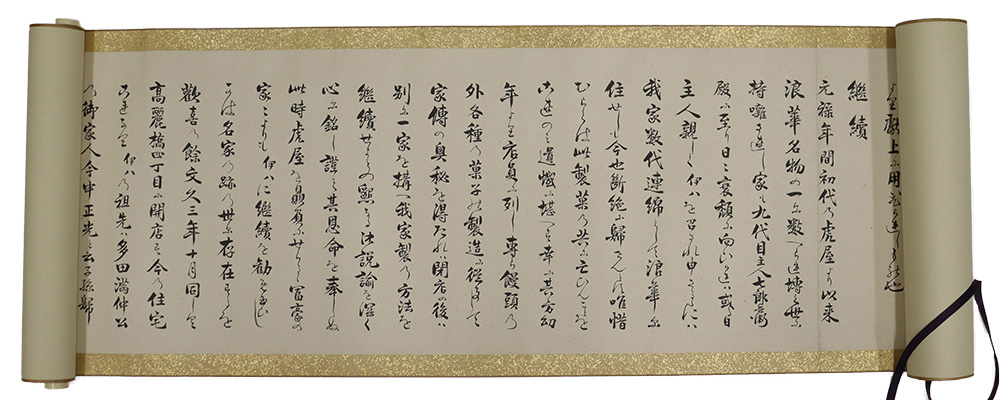 より獻上に用ゐ
繼續
元祿年間初代の虎屋より以来
浪華名物の一に数へられ連博く世に
持囃され家も九代目主人七郎
殿に至り日に衰頽に向ひ或日
主人親しく伊八を召され申さるゝには
我家数代連綿として浪華に
住せしも今也断絶に歸せんとす唯惜
むらくは此製菓の共に亡ひんことを
遺憾に堪へす幸に其方幼
年より店員に列し専ら饅頭の
外各種の菓子の製造に従事して
家傳の奥秘を得たれは閉店の後は
別に一家を構へ我家製の方法を
繼續せよとの懇なる説諭を深く
心に銘し謹て其恩命を奉しぬ
此時虎屋を贔屓にせられし冨豪の
家よりも伊八に繼續を勧
は名家の跡の世に存在するを
歡喜の餘文久三年十月同しく
高麗橋四丁目に開店す今の住宅
これなり伊八の祖先は多田満仲公
の御家人今中正光と云子孫歸